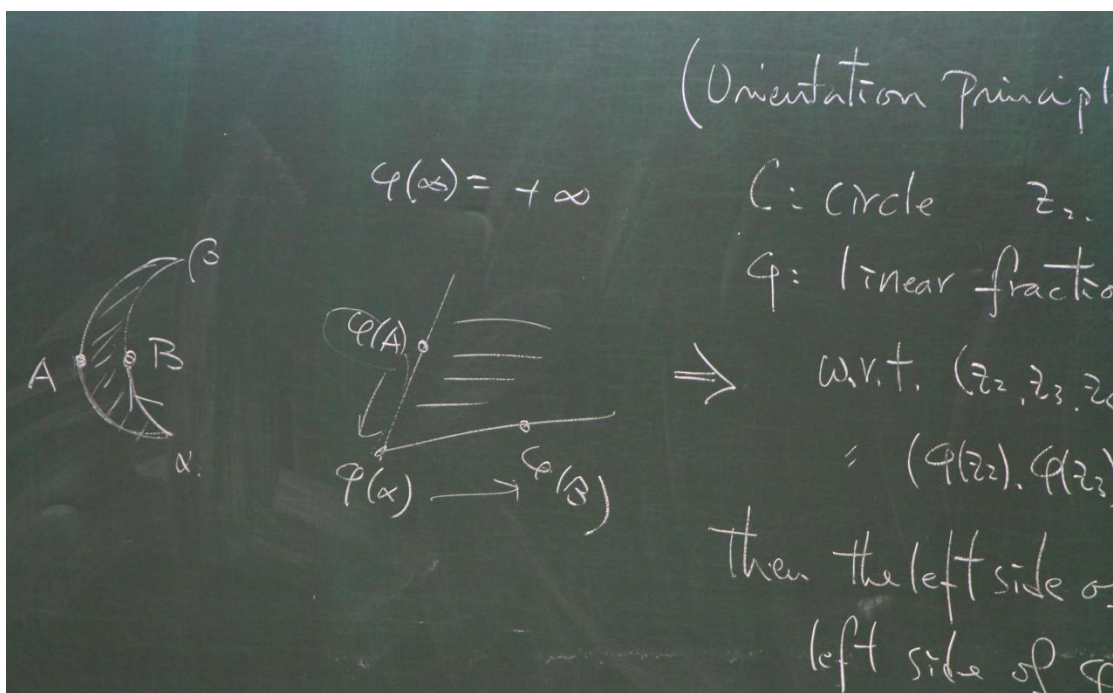 (Orientation Principl
φ(∞) = +∞
C: circle z₂.
φ: linear fractio
β
φ(A)
A
B
⇒ w.r.t. (z₂, z₃, z₄
α.
φ(α) → φ(B)
= (φ(z₂), φ(z₃)
then the left side o
left side of φ